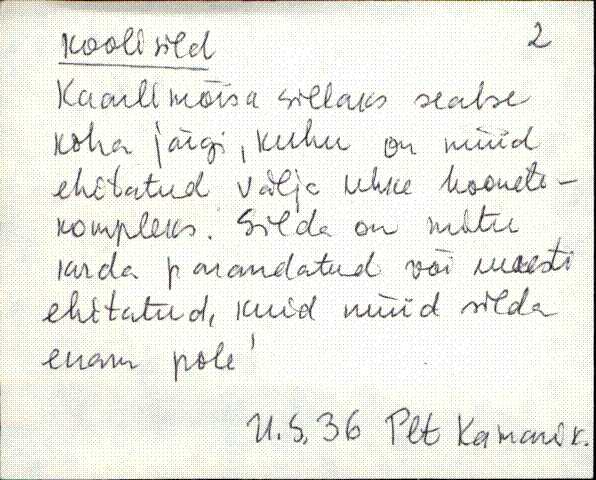 Koolisild 2
Kaarlimõisa sillaks sealse
koha järgi, kuhu on nüüd
ehitatud välja uhke hoonete-
kompleks. Silda on mitu
korda parandatud või uuesti
ehitatud, kuid nüüd silda
enam pole!
U.S. 36 Plt Kamarik.